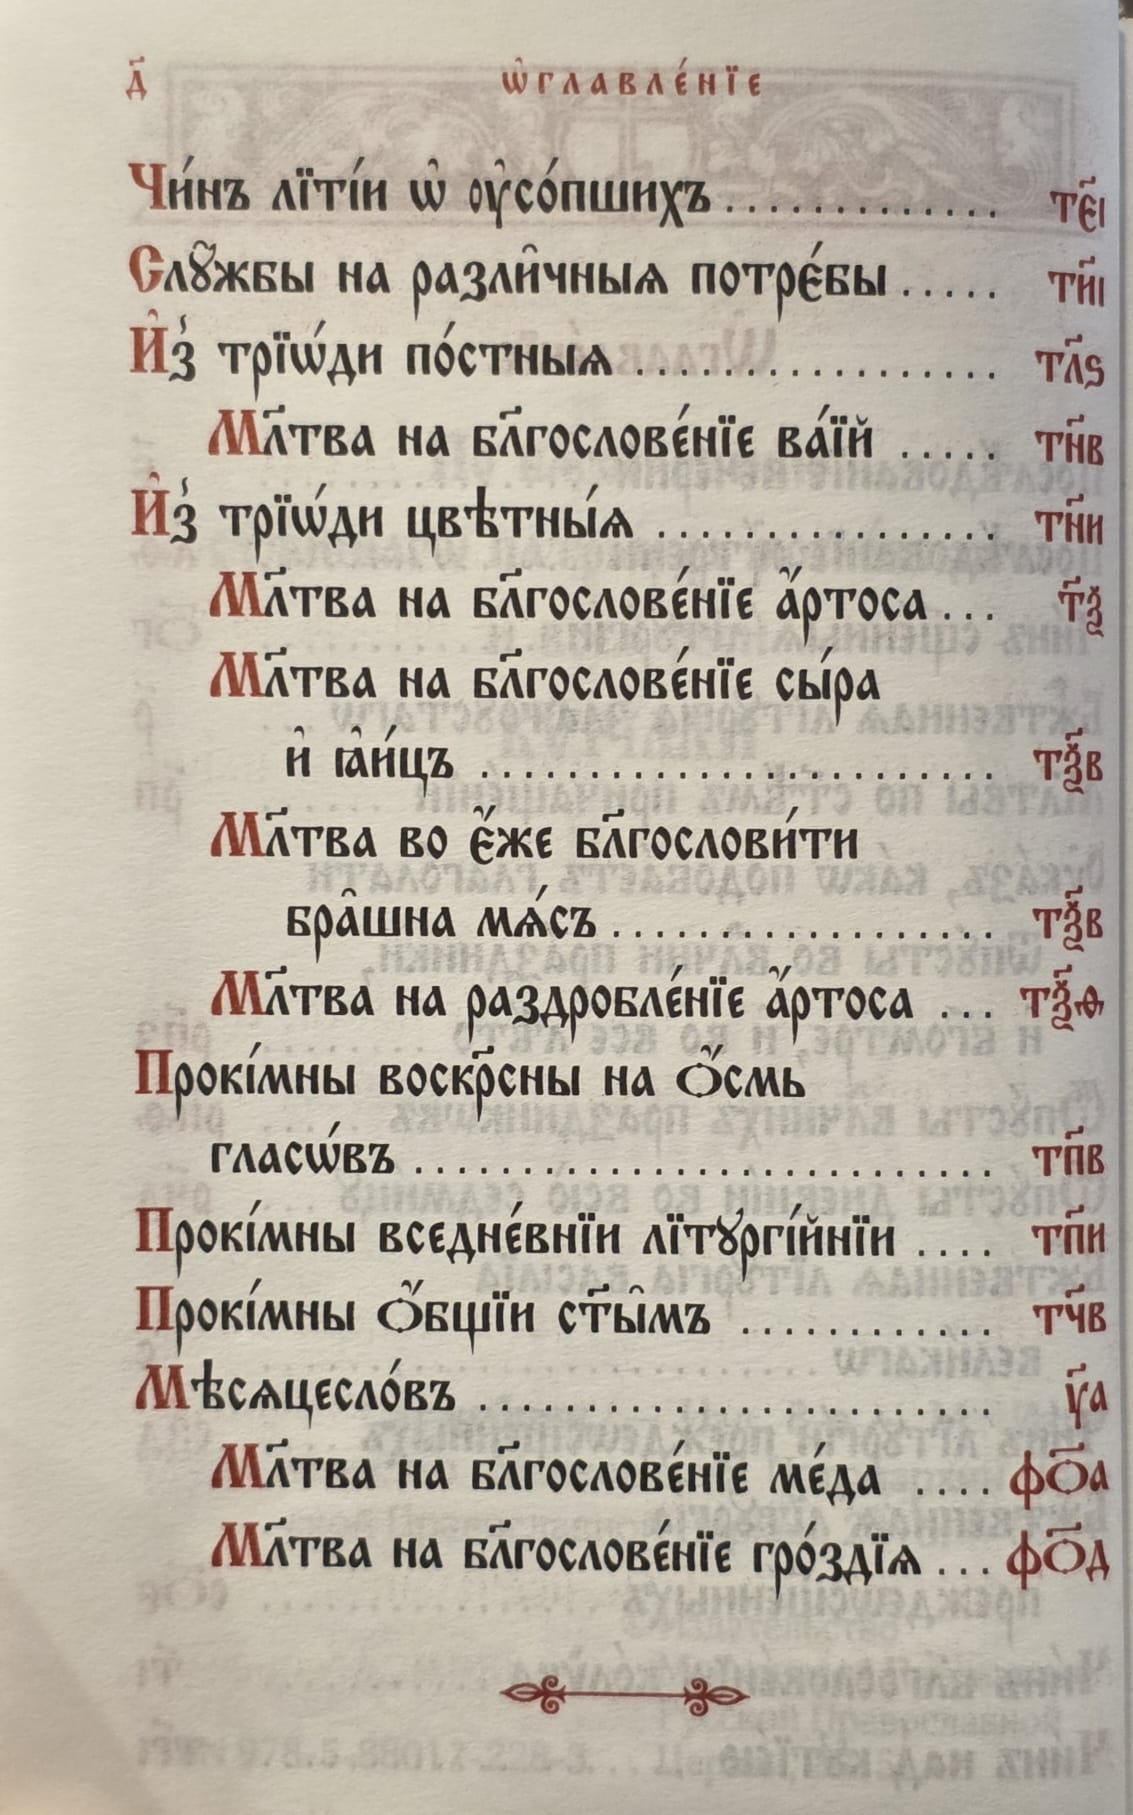 д҃ ѡ҆главле́нїе
Чи́нъ лїті́и ѡ҆ ᲂу҆со́пшихъ ............. тє҃і
Слꙋ̑жбы на разли̑чныѧ потрє́бы ..... ти҃і
И҆з̾ трїѡ́ди по́стныѧ .................. тл҃ѕ
Мл҃тва на бл҃гослове́нїе ва́їй ..... тн҃в
И҆з̾ трїѡ́ди цвѣтны́ѧ ................ тн҃и
Мл҃тва на бл҃гослове́нїе а҆́ртоса ... т҃ѯ
Мл҃тва на бл҃гослове́нїе сы́ра
и҆ ꙗ҆и́цъ ........................ тѯ҃в
Мл҃тва во є҆́же бл҃гослови́ти
бра̑шна мѧ́съ .................. тѯ҃в
Мл҃тва на раздробле́нїе а҆́ртоса ... тѯ҃ѳ
Прокі́мны воскр҃сны на ѻ҆́смь
гласѡ́въ ........................... тп҃в
Прокі́мны вседне́внїи лїтꙋргі́йнїи .... тп҃и
Прокі́мны ѻ҆́бщїи ст҃ы̑мъ ............ тч҃в
Мѣсѧцесло́въ ........................ у҃а
Мл҃тва на бл҃гослове́нїе ме́да .... фѻ҃а
Мл҃тва на бл҃гослове́нїе гро́здїѧ ... фѻ҃д